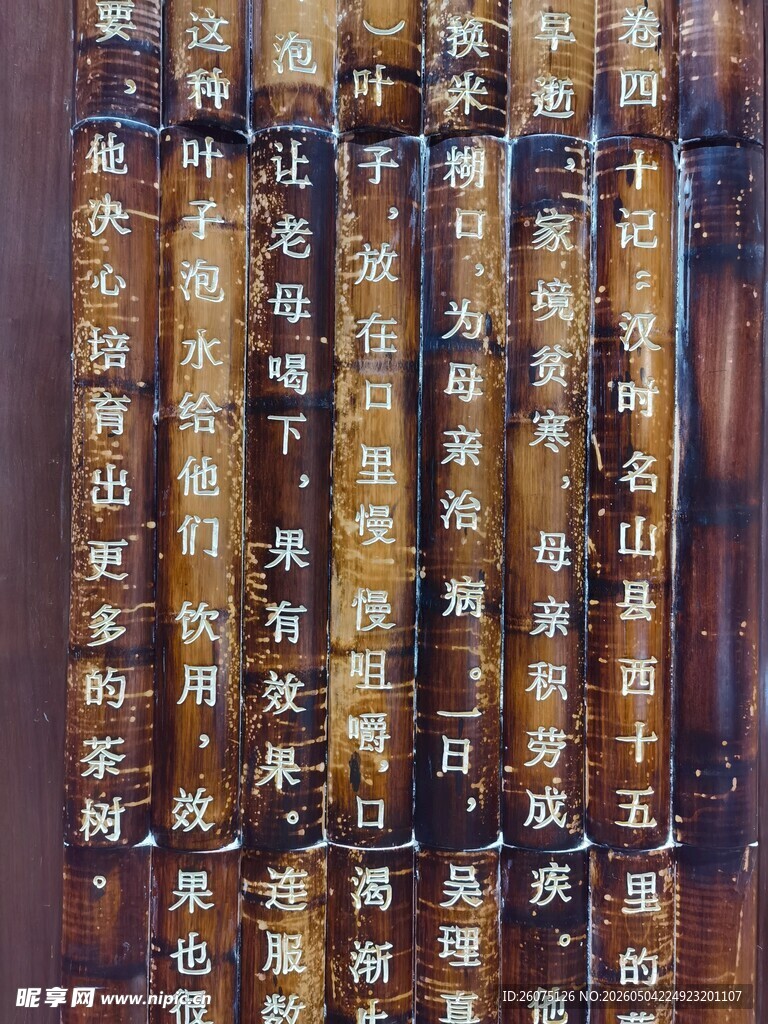 卷四十记：汉时名山县西十五里的
早逝，家境贫寒，母亲积劳成疾。他
换米糊口，为母亲治病。一日，吴理真
）叶子，放在口里慢慢咀嚼，口渴渐止
泡让老母喝下，果有效果。连服数
这种叶子泡水给他们饮用，效果也很
要，他决心培育出更多的茶树。
昵享网 www.nipic.cn
ID:26075126 NO:20260504224923201107